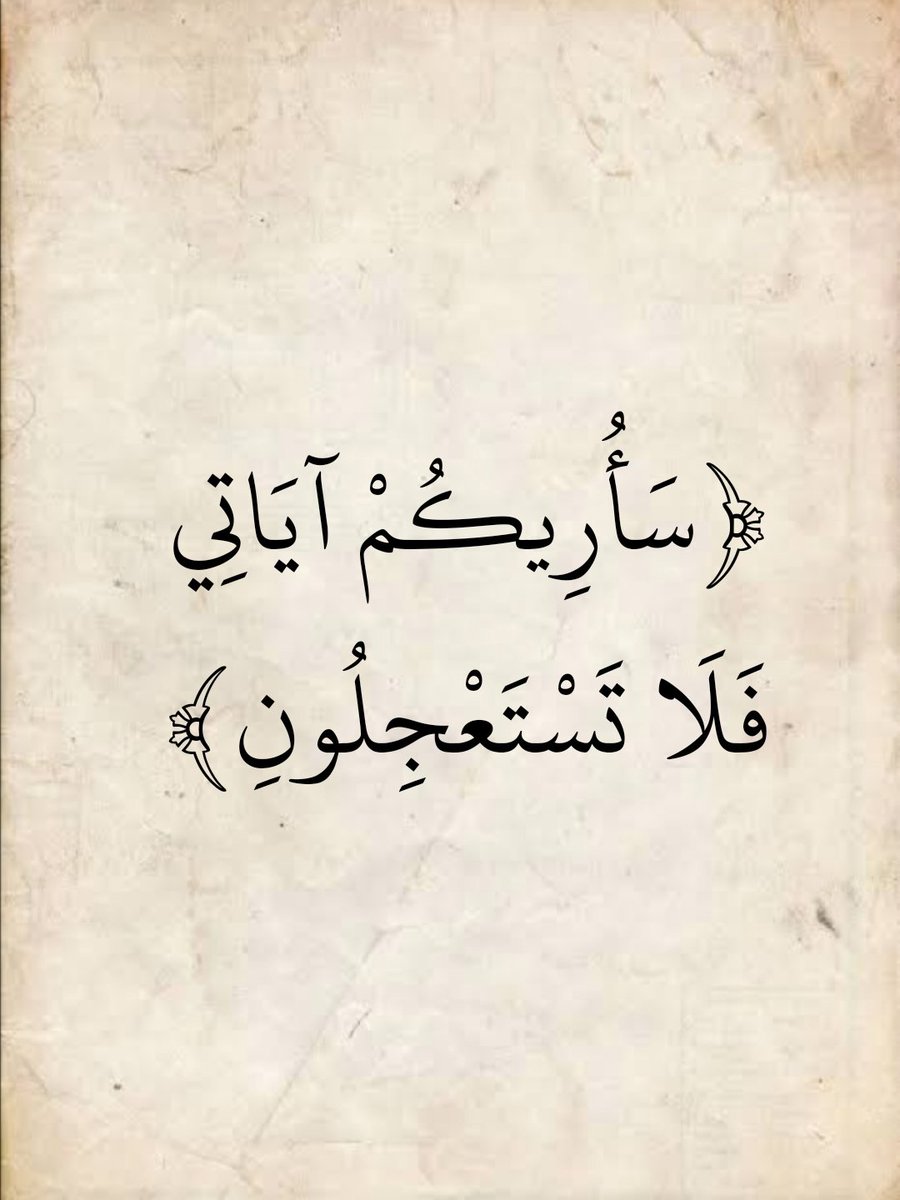 ﴿سَأُرِيكُمْ آيَاتِي
فَلَا تَسْتَعْجِلُونِ﴾